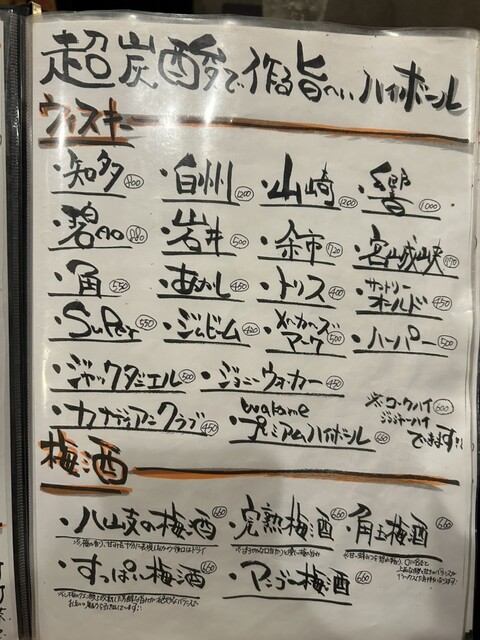 超炭酸で作る旨〜いハイボール
ウィスキー
・知多 800 ・白州 1200 ・山崎 1200 ・響 1000
・碧Ao 880 ・岩井 500 ・余市 720 ・宮城峡 770
・角 550 ・あかし 450 ・トリス 400 ・サントリーオールド 450
・Super 550 ・ジムビーム 420 ・メーカーズマーク 500 ・ハーパー 500
・ジャックダニエル 500 ・ジョニーウォーカー 450
・カナディアンクラブ 450 ・wakameプレミアムハイボール 660 ※コークハイ 600
ジンジャーハイ
できます!!
梅酒
・八岐の梅酒 660 ・完熟梅酒 660 ・角玉梅酒 660
・すっぱい梅酒 660 ・マンゴー梅酒 660